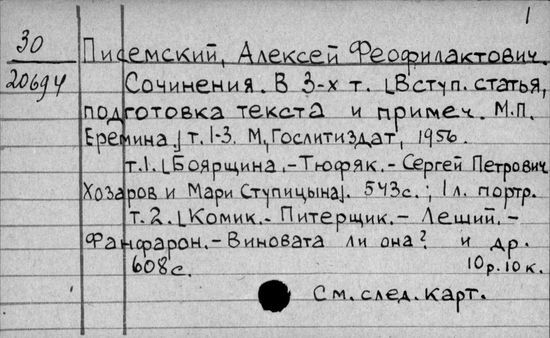 1
30
20694
Писемский, Алексей Феофилактович.
Сочинения. В 3-х т. [Вступ. статья,
подготовка текста и примеч. М.П.
Еремина] т. 1-3. М., Гослитиздат, 1956.
т. 1. [Боярщина.-Тюфяк.-Сергей Петрович
Хозаров и Мари Ступицына]. 543с.; 1 л. портр.
т. 2. [Комик.-Питерщик.-Леший.-
Фанфарон.-Виновата ли она? и др.
608с. 10р. 10к.
См. след. карт.